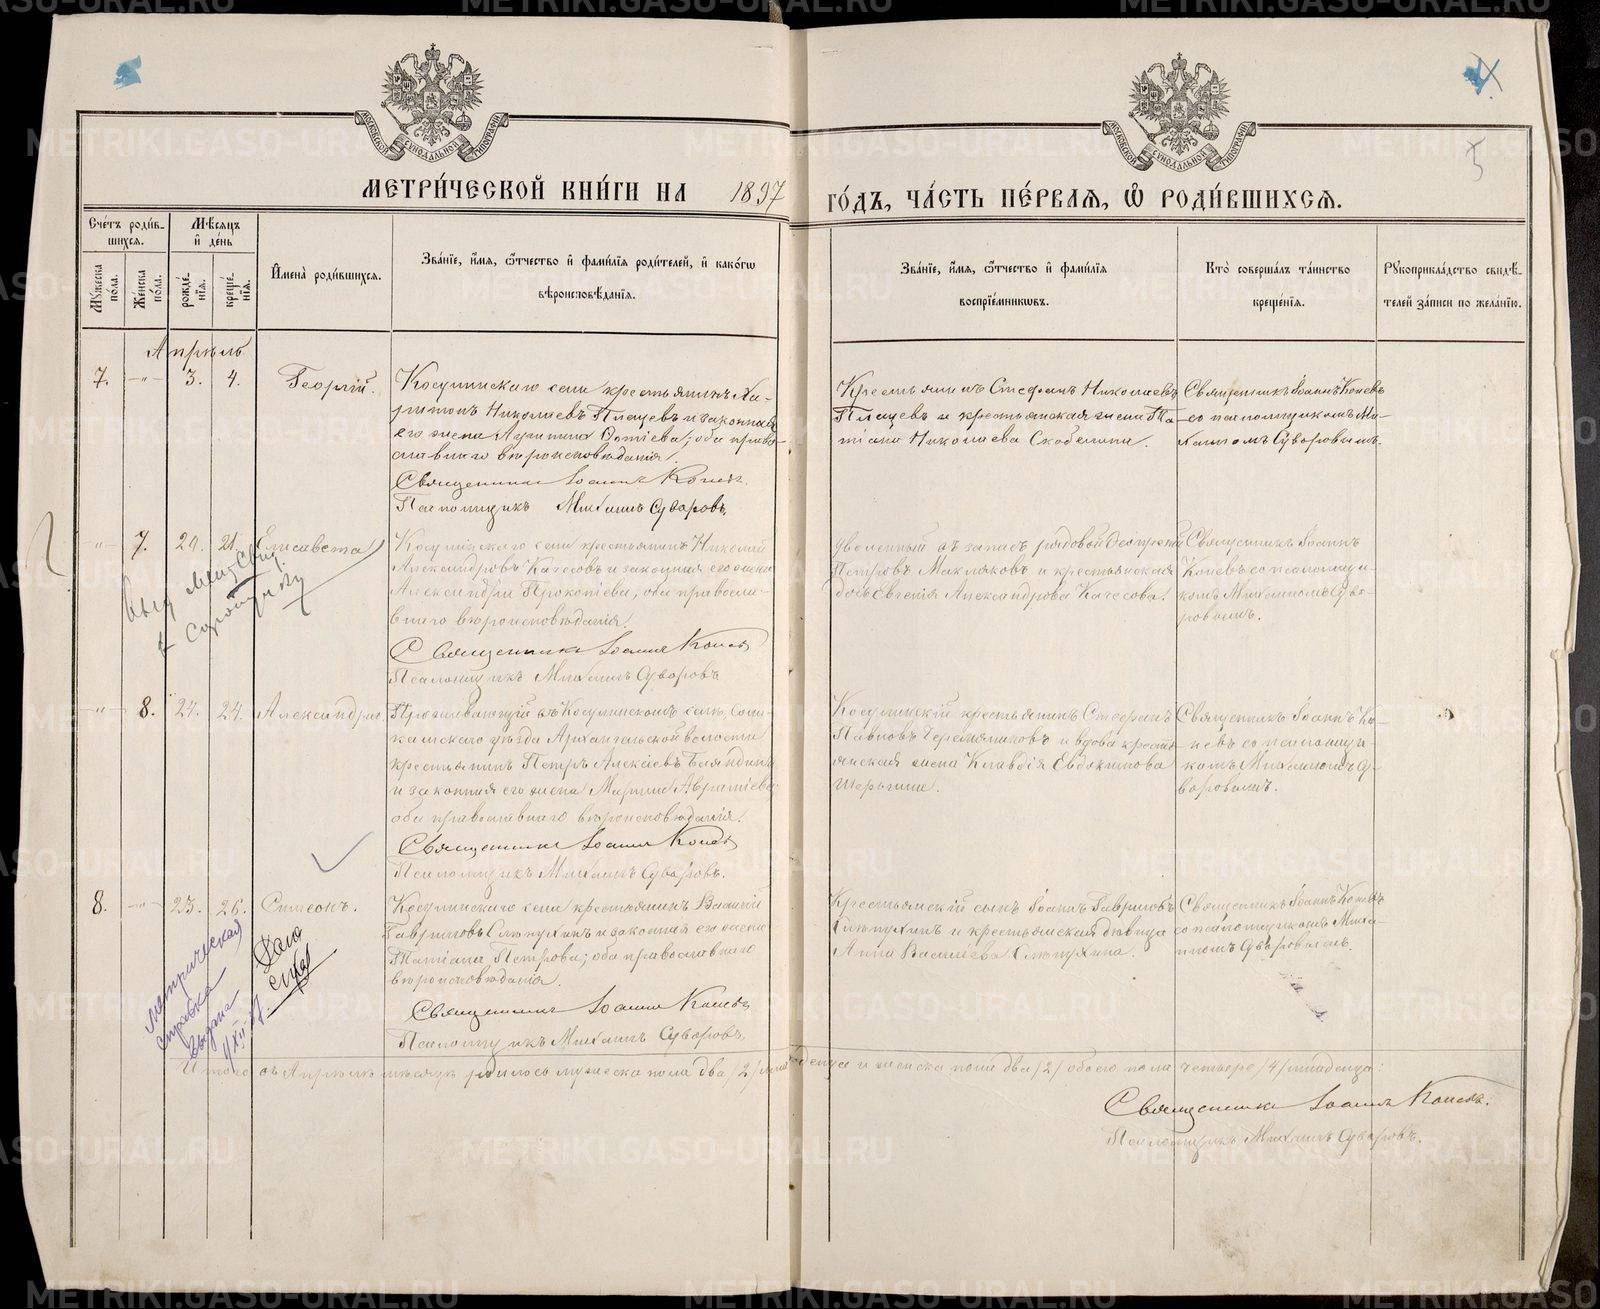 МОСКОВСКОЙ СУНОДАЛЬНОЙ ТИПОГРАФІИ
МОСКОВСКОЙ СУНОДАЛЬНОЙ ТИПОГРАФІИ
МЕТРИ́ЧЕСКОЙ КНИ́ГИ НА 1897 ГО́ДЪ, ЧА́СТЬ ПЕ́РВАЯ, Ѡ҆ РОДИ́ВШИХСЯ.
Сче́тъ роди́в-
шихся.
Мѣ́сяцъ
и҆ де́нь
Му́жеска
по́ла.
Же́нска
по́ла.
рожде́-
нїя.
креще́-
нїя.
И҆мена̀ роди́вшихся.
Зва́нїе, и҆́мя, ѻ҆́тчество и҆ фами́лїя роди́телей, и҆ како́гѡ
вѣроисповѣ́данїя.
Зва́нїе, и҆́мя, ѻ҆́тчество и҆ фами́лїя
воспрїе́мникѡвъ.
Кто̀ соверша́лъ та́инство
креще́нїя.
Рꙋкоприкла́дство свидѣ́-
телей за́писи по жела́нїю.
Апрѣль
7. —"— 3. 4. Георгій.
Косулинскаго села крестьянинъ Ха-
ритонъ Николаевъ Плащевъ и законная
его жена ; оба право-
славнаго вѣроисповѣданія.
Священникъ Іоаннъ Коневъ.
Псаломщикъ Михаилъ Суворовъ.
Крестьянинъ Стефанъ Николаевъ
Плащевъ и крестьянская жена Та-
тіана Николаева Скобелина.
Священникъ Іоаннъ Коневъ
со псаломщикомъ Ми-
хаиломъ Суворовымъ.
—"— 7. 20. 21. Елисавета
Косулинскаго села крестьянинъ Николай
Александровъ Качесовъ и законная его жена
Александра Прокопіева, оба правосла-
внаго вѣроисповѣданія.
Священникъ Іоаннъ Коневъ
Псаломщикъ Михаилъ Суворовъ
Уволенный въ запасъ рядовой
Петровъ Макляковъ и крестьянская
дочь Евгенія Александрова Качесова.
Священникъ Іоаннъ
Коневъ со псаломщи-
комъ Михаиломъ Суво-
ровымъ.
—"— 8. 24. 24. Александра.
Проживающій въ Косулинскомъ селѣ, Соли-
камскаго уѣзда Архангельской волости
крестьянинъ Петръ Алексѣевъ Баяндинъ
и законная его жена Марина
оба православнаго вѣроисповѣданія.
Священникъ Іоаннъ Коневъ
Псаломщикъ Михаилъ Суворовъ.
Косулинскій крестьянинъ Стефанъ
Павловъ Черемянниковъ и вдова кресть-
янская жена Клавдія Евдокимова
Шерыгина.
Священникъ Іоаннъ Ко-
невъ со псаломщи-
комъ Михаиломъ Су-
воровымъ.
8. —"— 23. 26. Симеонъ.
Косулинскаго села крестьянинъ Василій
Гавриловъ и законная его жена
Татіана Петрова; оба православнаго
вѣроисповѣданія.
Священникъ Іоаннъ Коневъ
Псаломщикъ Михаилъ Суворовъ.
Крестьянскій сынъ Іоаннъ Гавриловъ
и крестьянская дѣвица
Анна Васильева
Священникъ Іоаннъ Коневъ
со псаломщикомъ Миха-
иломъ Суворовымъ.
Метрическая
справка
выдана
Итого въ Апрѣлѣ мѣсяцѣ родилось мужеска пола два /2/ младенца и женска пола два /2/ обоего пола четыре /4/ младенца:
Священникъ Іоаннъ Коневъ.
Псаломщикъ Михаилъ Суворовъ.
METRIKI.GASO-URAL.RU